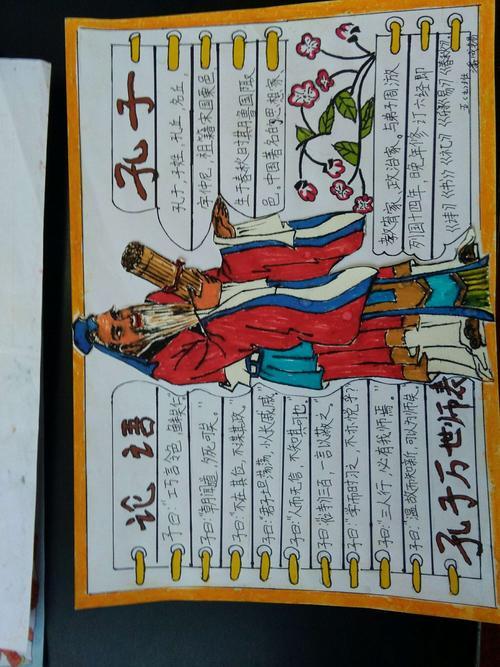 论语
子曰:"巧言令色,鲜矣仁"
子曰:"朝闻道,夕死可矣。"
子曰:"不在其位,不谋其政。"
子曰:"君子坦荡荡,小人长戚戚"
子曰:"人而无信,不知其可也"
子曰:"诗三百,一言以蔽之,
子曰:"学而时习之,不亦说乎?
子曰:"三人行,必有我师焉。
子曰:"温故而知新,可以为师矣。
孔子万世师表
孔子
孔子,子姓,孔氏,名丘,
字仲尼,祖籍宋国栗邑
生于春秋时期鲁国陬
邑。中国著名的思想家
教育家、政治家。与弟子周游
列国十四年,晚年修订六经,即
《诗》《书》《礼》《乐》《易》《春秋》